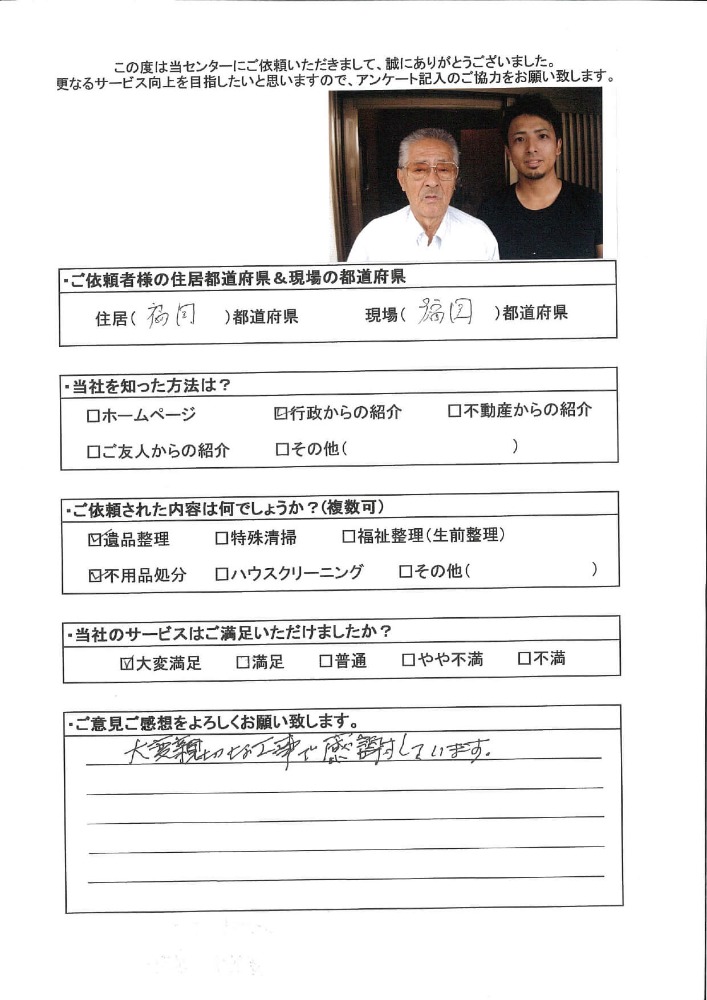 この度は当センターにご依頼いただきまして、誠にありがとうございました。
更なるサービス向上を目指したいと思いますので、アンケート記入のご協力をお願い致します。
・ご依頼者様の住居都道府県＆現場の都道府県
住居( 福岡 )都道府県 現場( 福岡 )都道府県
・当社を知った方法は？
□ホームページ ☑行政からの紹介 □不動産からの紹介
□ご友人からの紹介 □その他( )
・ご依頼された内容は何でしょうか？(複数可)
☑遺品整理 □特殊清掃 □福祉整理(生前整理)
☑不用品処分 □ハウスクリーニング □その他( )
・当社のサービスはご満足いただけましたか？
☑大変満足 □満足 □普通 □やや不満 □不満
・ご意見ご感想をよろしくお願い致します。
大変親切な工事で感謝しています。